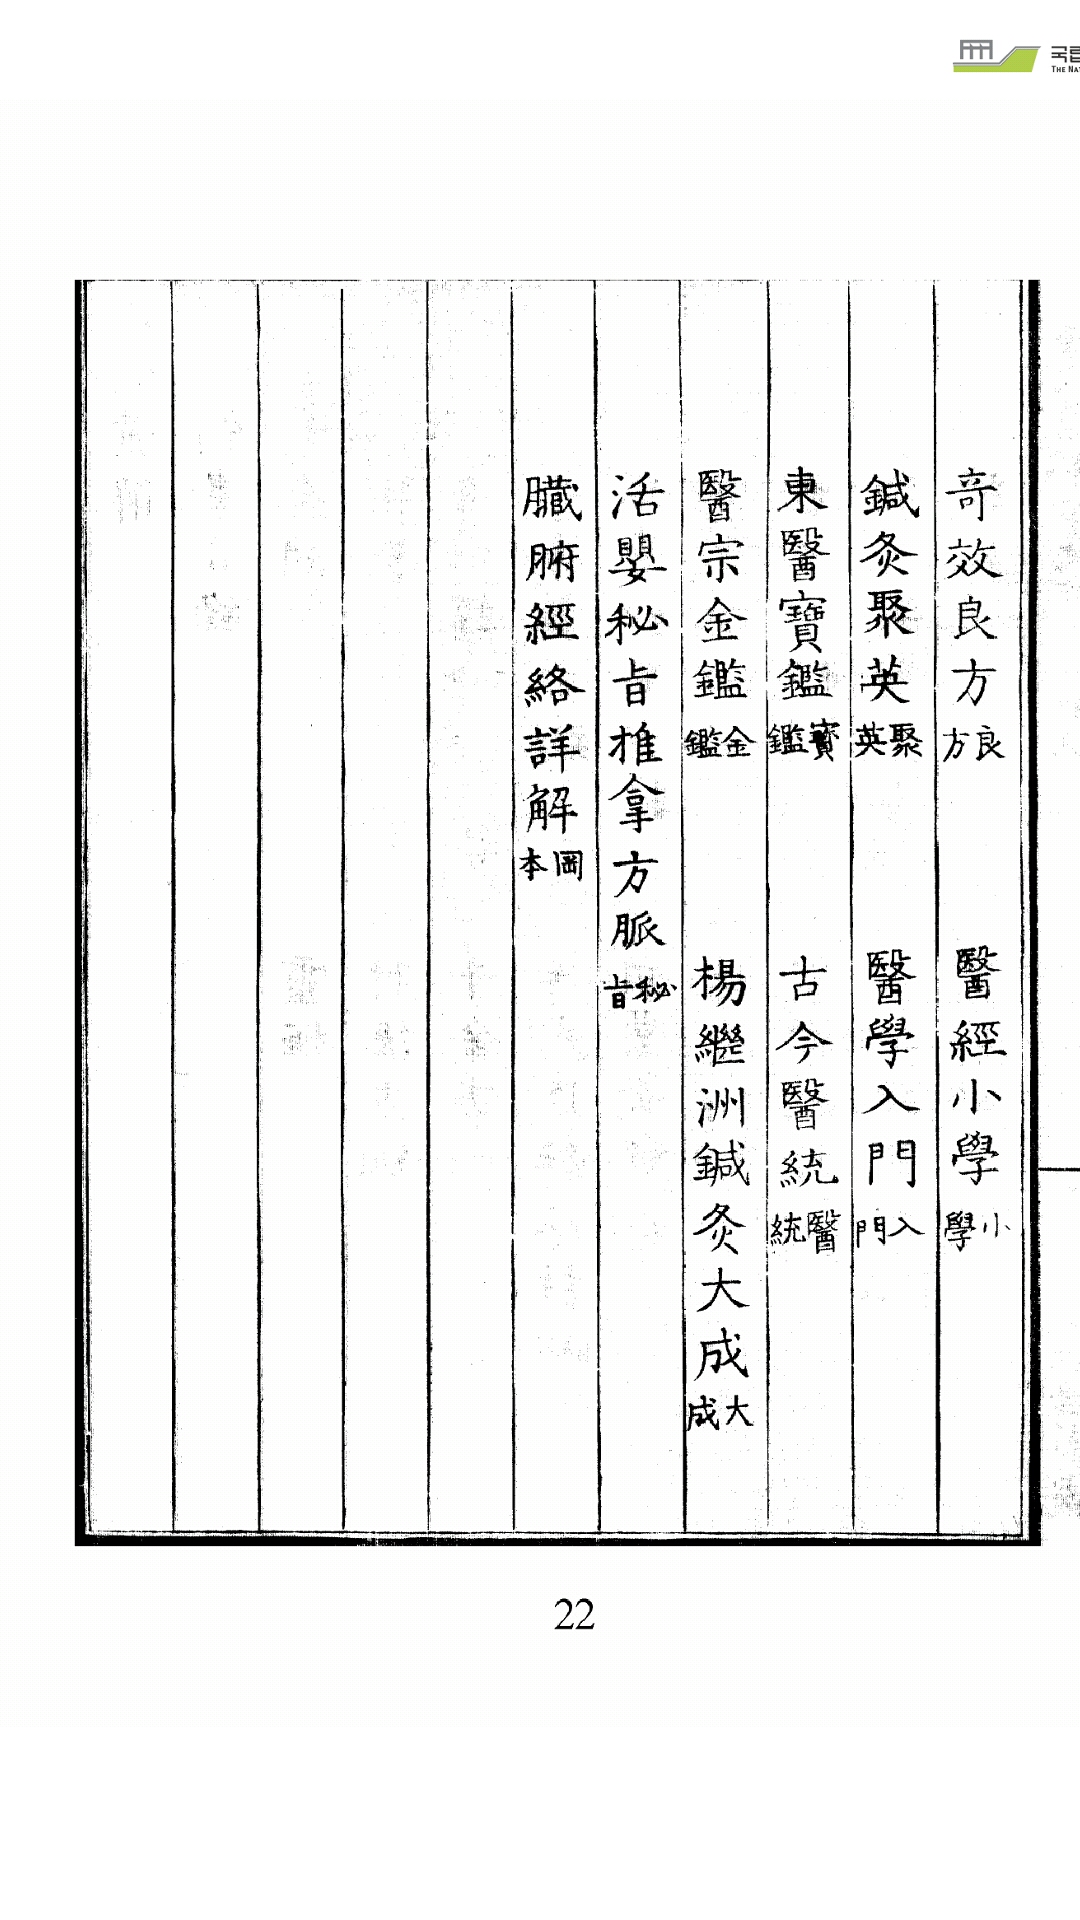 국립
THE NAT
奇效良方 良方
醫經小學 小學
鍼灸聚英 聚英
醫學入門 入門
東醫寶鑑 寶鑑
古今醫統 醫統
醫宗金鑑 金鑑
楊繼洲鍼灸大成 大成
活嬰秘旨推拿方脈 秘旨
臟腑經絡詳解 岡本
22